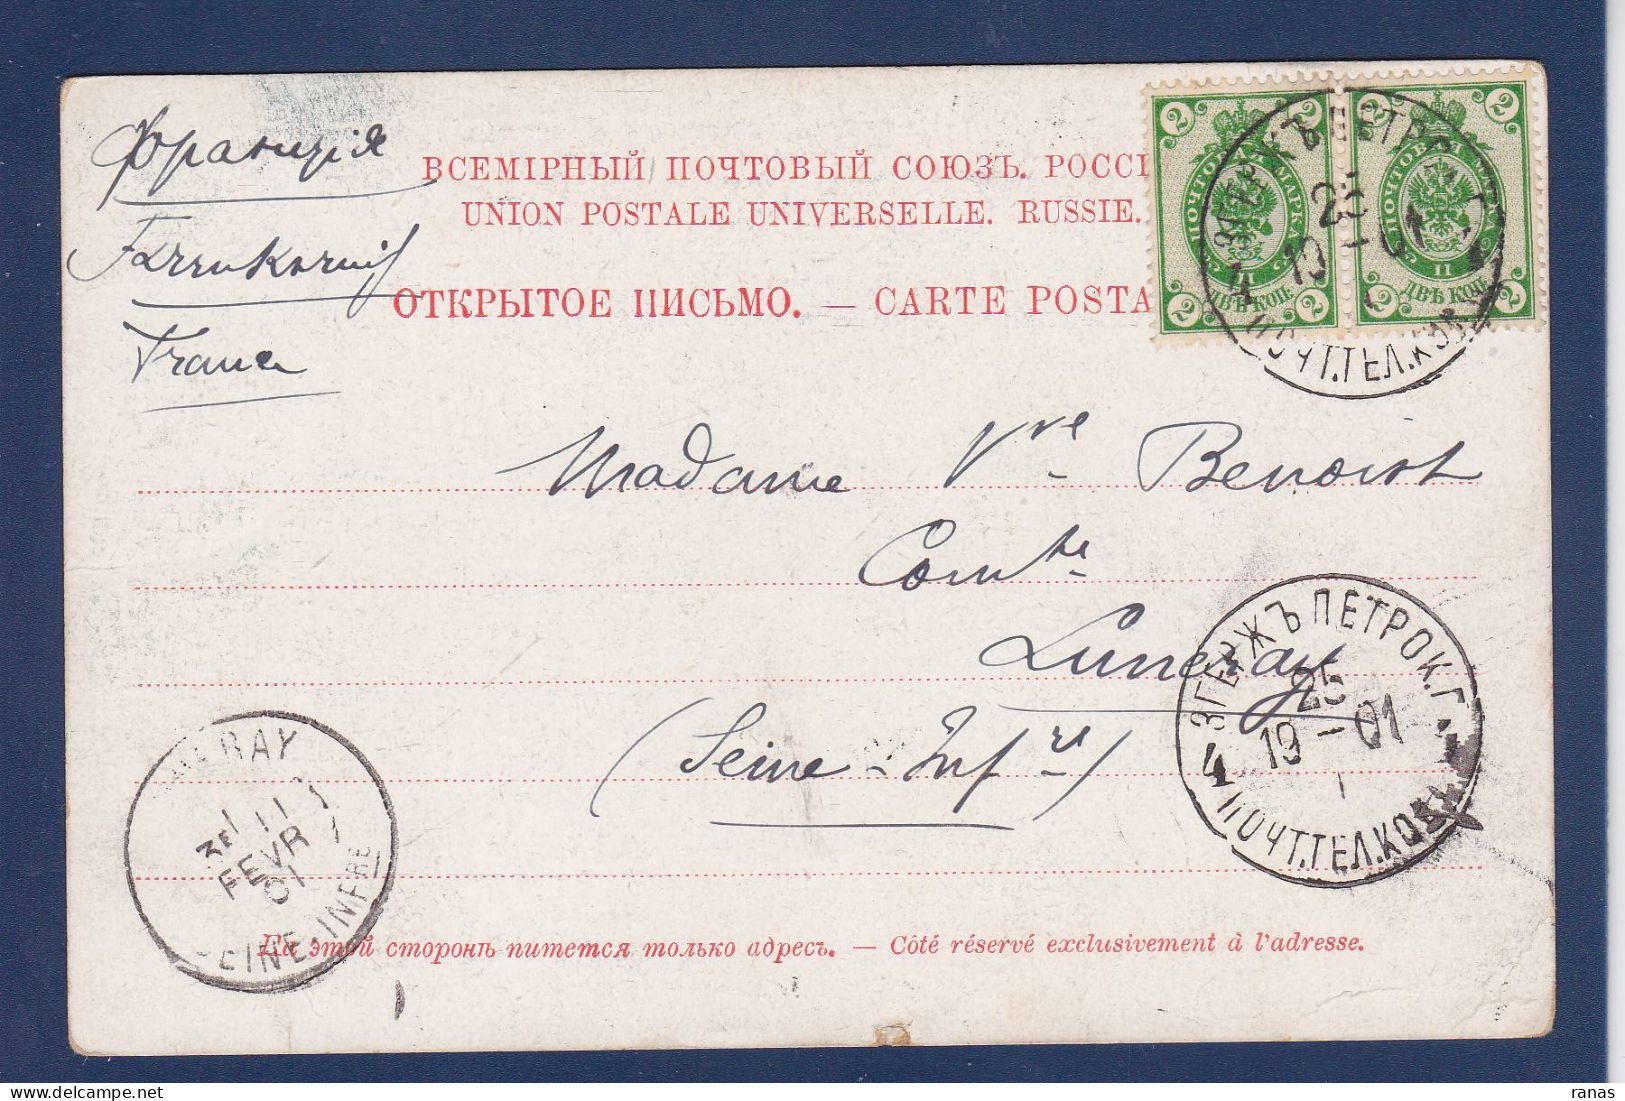 Франція
Frankreich
France
ВСЕМІРНЫЙ ПОЧТОВЫЙ СОЮЗЪ. РОССІ
UNION POSTALE UNIVERSELLE. RUSSIE.
ОТКРЫТОЕ ПИСЬМО. — CARTE POSTA
2 2 2 2
ПОЧТОВАЯ МАРКА
ДВѢ КОП.
2 2 2 2
ПОЧТОВАЯ МАРКА
ДВѢ КОП.
ЗГЕРЖЪ ПЕТРОК.Г.
25
19 - 01
4
ПОЧТ.ТЕЛ.КОН
Madame Vve Benoist
Comte
Luneray
(Seine-Infre)
ЗГЕРЖЪ ПЕТРОК.Г.
25
19 - 01
4 1
ПОЧТ.ТЕЛ.КОН
NERAY
11
FEVR
01
SEINE-INFRE
На этой сторонѣ пишется только адресъ. — Côté réservé exclusivement à l'adresse.
ranas